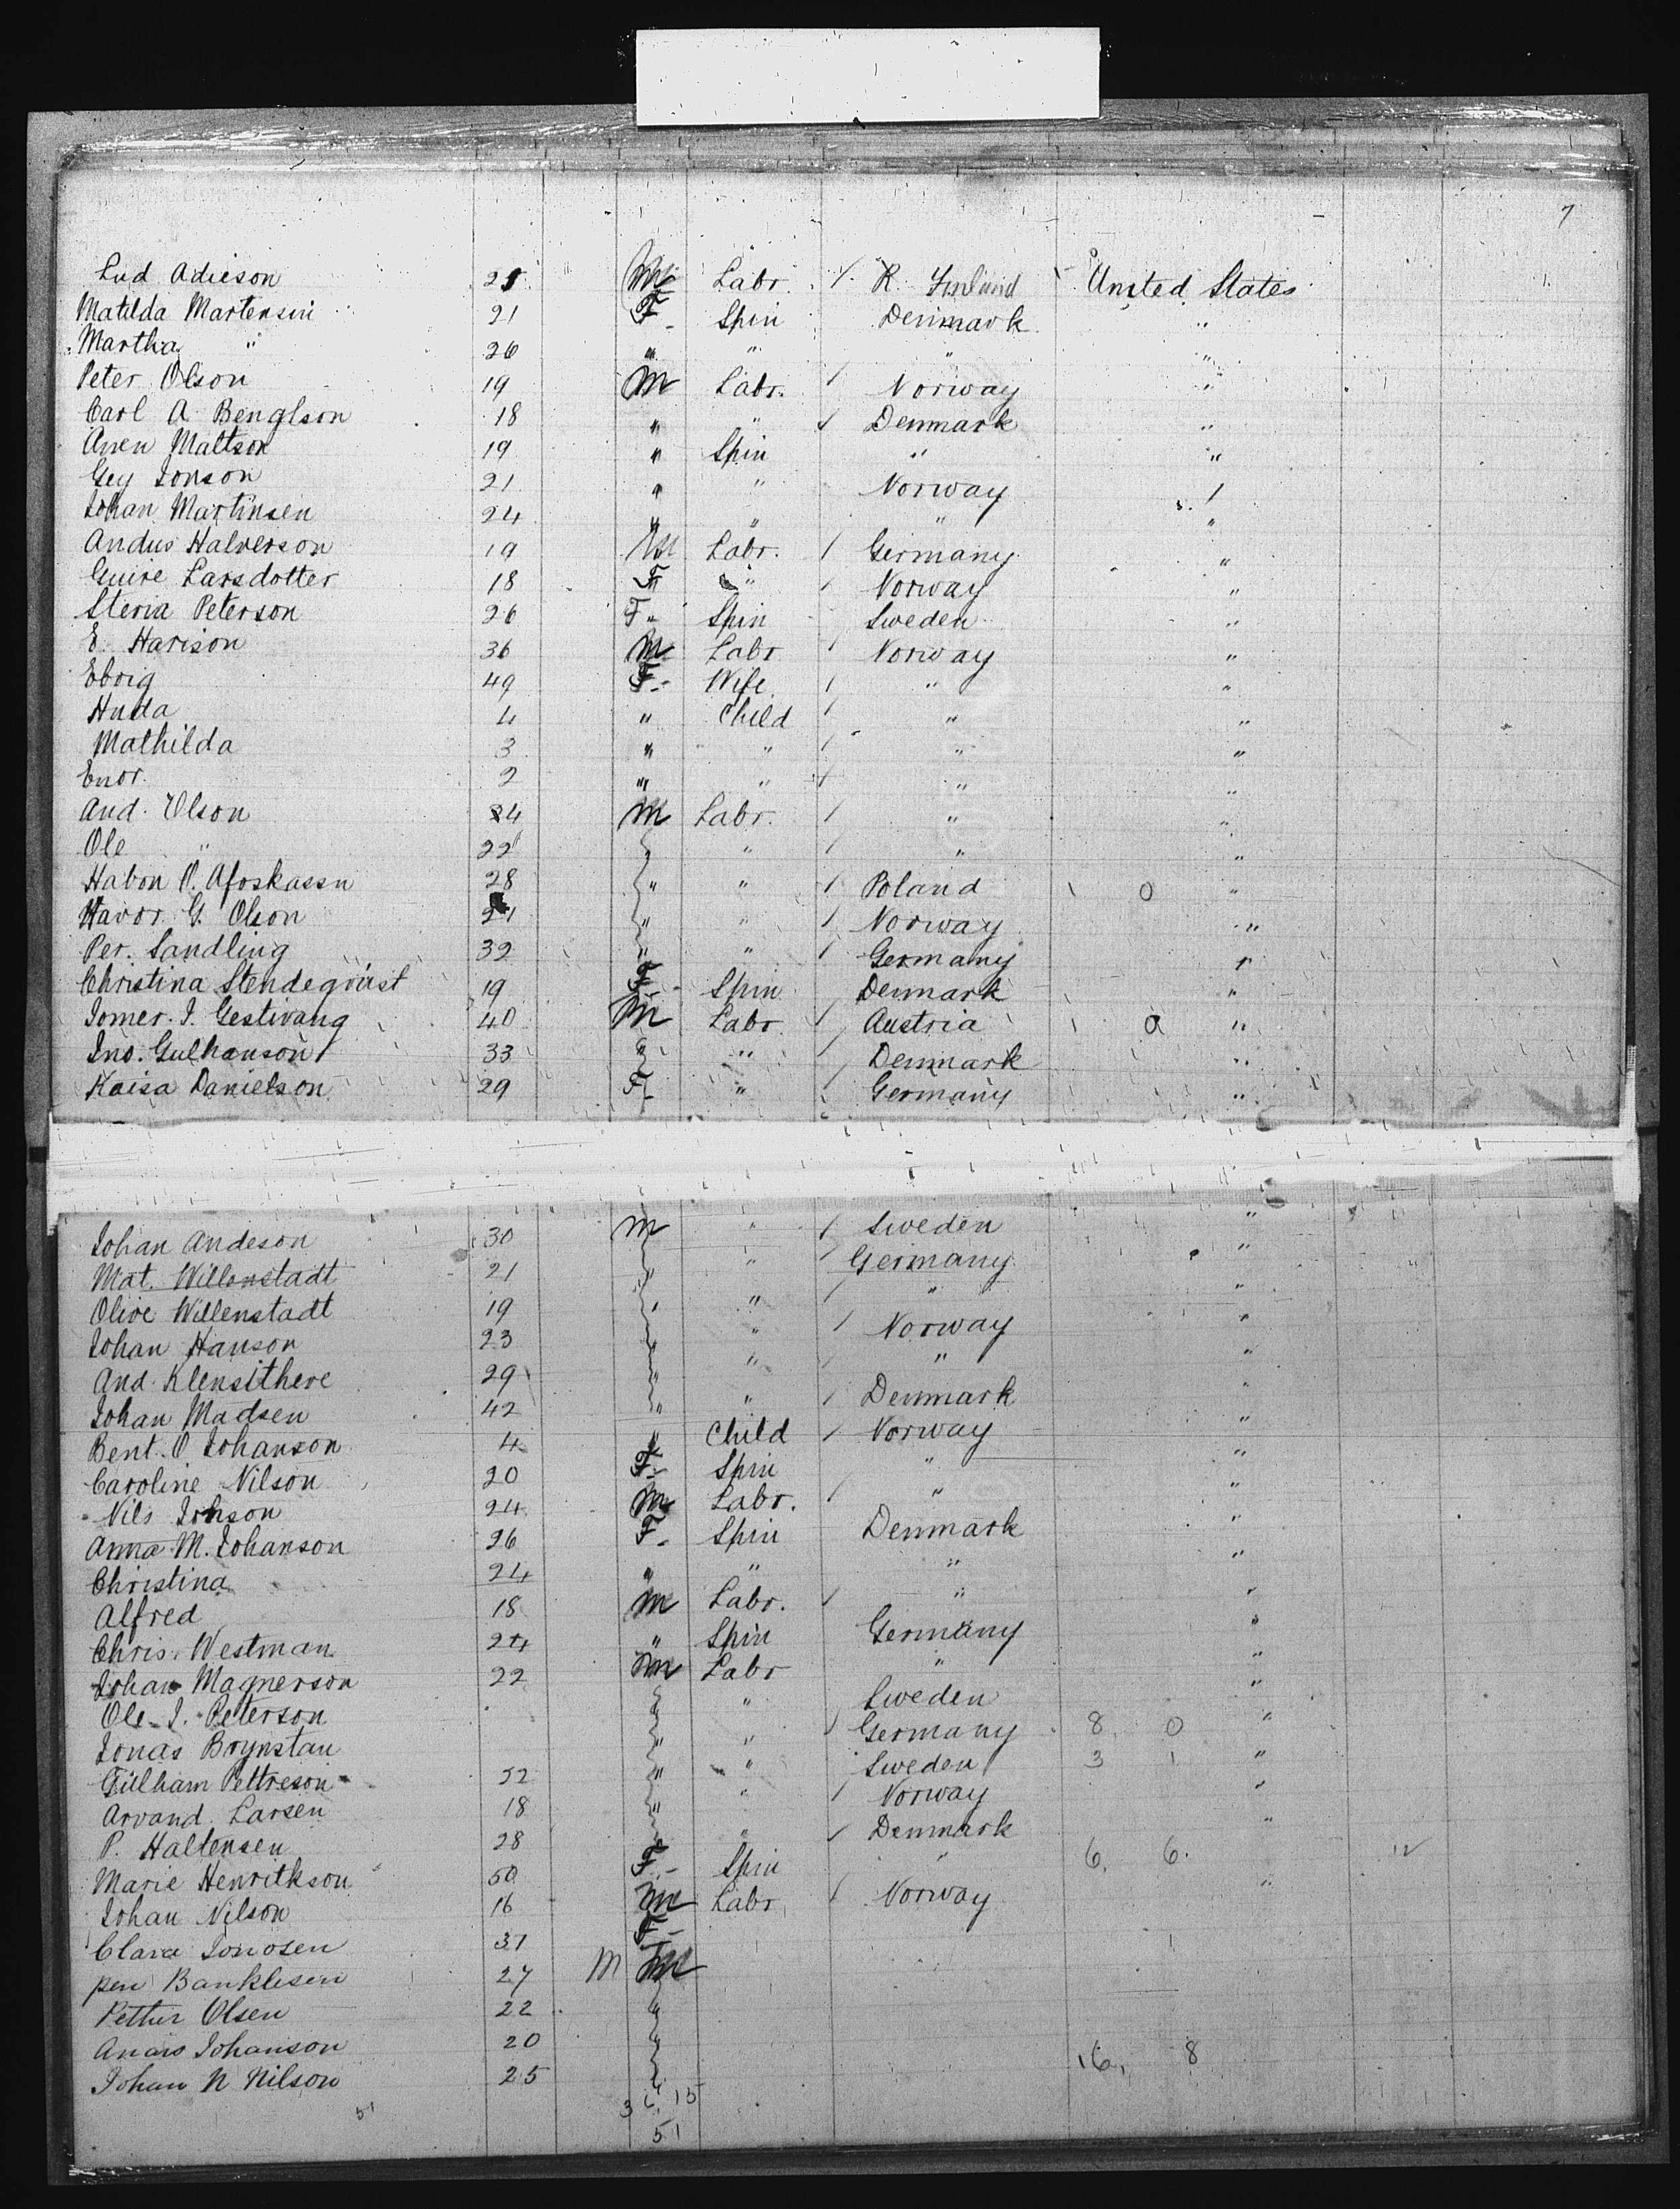 7
Lud Adieson 25 M Labr. / R. Finland United States
Matilda Martensin 21 F Spin Denmark "
Martha " 26 " " " "
Peter Olson 19 M Labr. / Norway "
Carl A. Benglson 18 " " / Denmark "
Aven Maltson 19 " Spin " "
Gey Jonson 21 " " Norway "
Johan Martinsen 24 " " " "
Andus Halverson 19 M Labr. / Germany "
Guire Larsdotter 18 F " / Norway "
Steria Peterson 26 F " Spin Sweden "
E. Harison 36 M Labr / Norway "
Ebrig 49 F Wife / " "
Huda 4 " Child / " "
Mathilda 3 " " / " "
Enor. 2 " " / " "
And. Olson 24 M Labr. / " "
Ole " 22 " " / " "
Habon O. Afoskassn 28 " " / Poland 0 "
Havor G. Olson 21 " " / Norway "
Per. Sandling 32 " " / Germany "
Christina Stendeqvist 19 F Spin Denmark "
Jomer. J. Gestivang 40 M Labr / Austria 0 "
Jno. Gulhanson 33 " " / Denmark "
Kaisa Danielson 29 F " / Germany "
Johan Andeson 30 M " / Sweden "
Mat. Willenstadt 21 " " / Germany "
Olive Willenstadt 19 " " / " "
Johan Hanson 23 " " / Norway "
And. Klensithere 29 " " / " "
Johan Madsen 42 " " / Denmark "
Bent. O Johanson 4 " Child / Norway "
Caroline Nilson 20 F Spin " "
Nils Johson 24 M Labr. / " "
Anna M. Johanson 26 F Spin Denmark "
Christina 24 " " " "
Alfred 18 M Labr. / " "
Chris. Westman 24 " Spin Germany "
Johan Magnerson 22 M Labr " "
Ole J. Peterson " " Sweden "
Jonas Brynstan " " / Germany 8 0 "
Gulham Pettreson 52 " " Sweden 3 1 "
Arvand Larsen 18 " " / Norway "
P. Haltensen 28 " " / Denmark "
Marie Henrithson 50 F Spin " 6. 6. 12
Johan Nilson 16 M Labr / Norway "
Clara Jonosen 31 F
pen Banklesen 27 M M
Pettur Olsen 22 "
Anais Johanson 20 "
Johan N Nilson 25 " 16, 8
51 36. 15
51